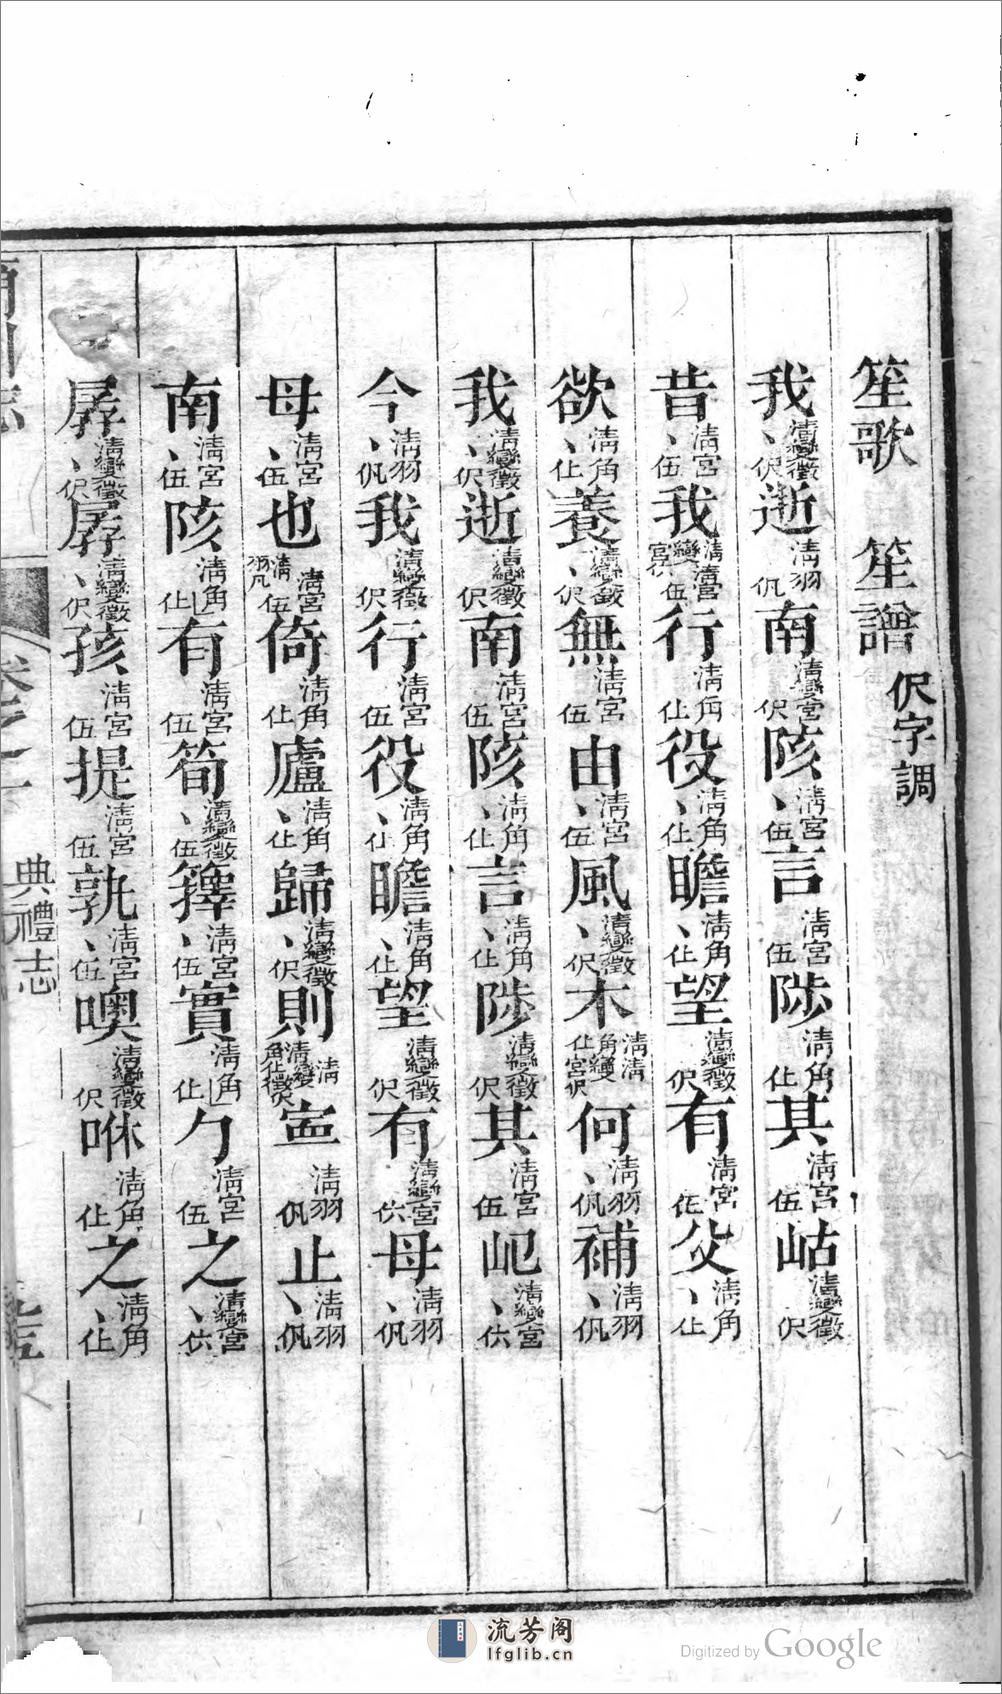 笙歌　笙譜 伬字調
我清變徵、伬逝清羽㐽南清變宮伬陔清宮、伍言清宮伍陟清角仩其清宮伍岵清變徵伬
昔清宮、伍我清清宮變宮伍行清角仩役清角、仩瞻清角、仩望清變徵伬有清宮父清角、仩
欲清角、仩養清變徵、伬無清宮伍由清宮、伍風清變徵、伬木清清角變仩宮伬何清羽、㐽補清羽、㐽
我清變徵、伬逝清變徵伬南清宮伍陔清角、仩言清角、仩陟清變徵伬其清宮伍屺清變宮、
今清羽、㐽我清變徵伬行清宮伍役清角、仩瞻清角、仩望清變徵伬有清變宮母清羽、㐽
母清宮、伍也清宮伍清羽凡倚清角仩廬清角、仩歸清變徵、伬則清清變角仩徵寍清羽㐽止清羽、㐽
南清宮、伍陔清角仩有清宮伍筍清變徵、伍籜清宮、伍實清角仩勹清宮伍之清變宮、
孱清變徵、伬孱清變徵、伬孩清宮伍提清宮伍孰清宮、伍噢清變徵伬咻清角仩之清角、仩
典禮志
流芳阁
lfglib.cn
Digitized by Google